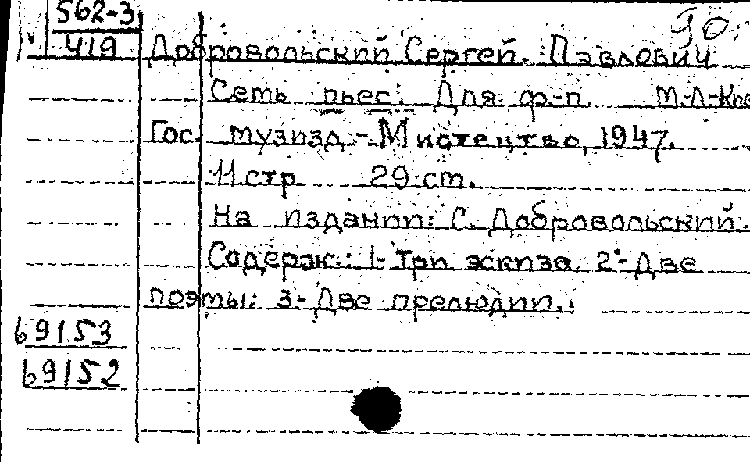 562-3
419
90.
Добровольский Сергей. Павлович
Семь пьес. Для ф-п. М-Л-Кие
Гос. музизд.-Мистецтво, 1947.
11 стр 29 ст.
На издании: С. Добровольский.
Содерж.: 1- Три эскиза. 2-Две
поэмы: 3- Две прелюдии.
69153
69152